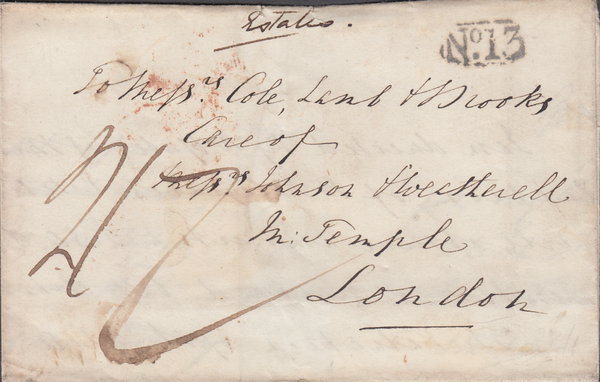 Estates.
No. 13
To Messrs. Cole, Lamb & Brooks
Care of
Messrs. Johnson & Weatherell
M: Temple
London